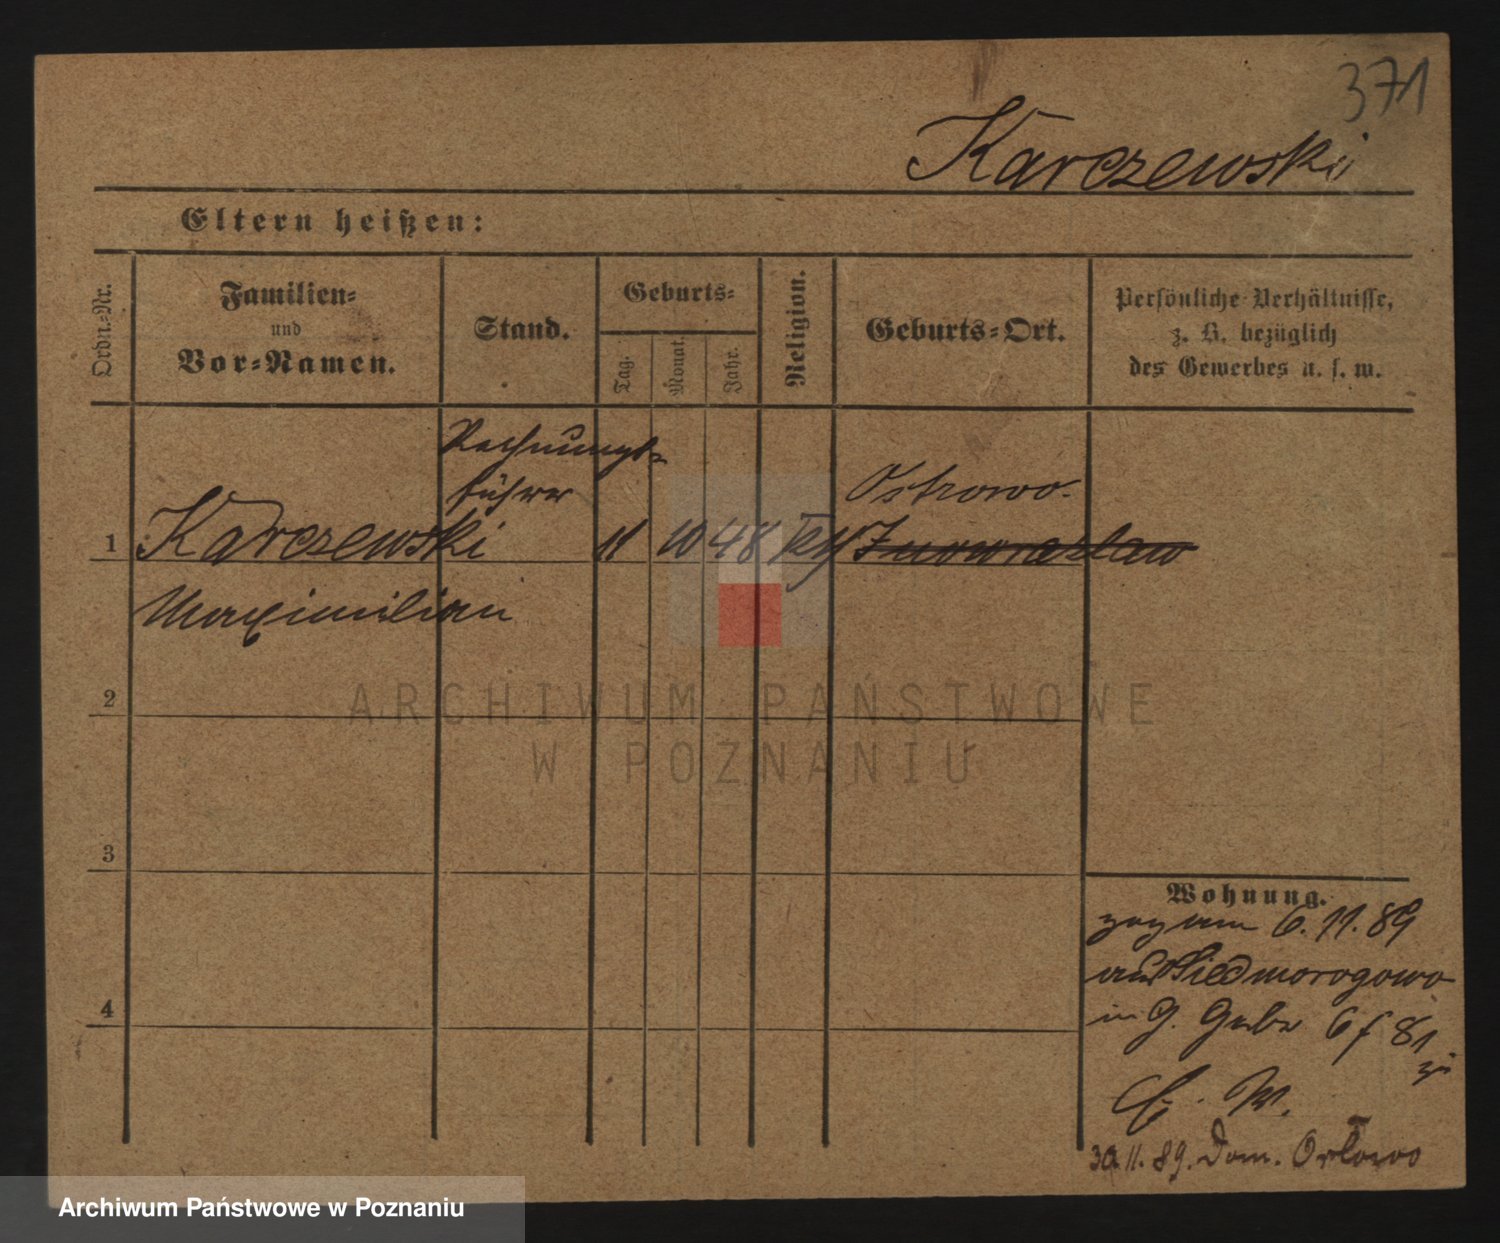 371
Karczewski
Eltern heißen:
Ordn.-Nr.
Familien-
und
Vor-Namen.
Stand.
Geburts-
Tag.
Monat.
Jahr.
Religion.
Geburts-Ort.
Persönliche Verhältnisse,
z. B. bezüglich
des Gewerbes u. s. w.
Rechnungs-
führer
Ostrowo.
1 Karczewski 11 10 48 Inowrazlaw
Maximilian
2
3
4
Wohnung.
zog am 6.11.89
aus Siedmorogowo
in G. 6 f 81
zu
E. W.
30.11.89. Dom. Orlowo
ARCHIWUM PAŃSTWOWE
W POZNANIU
Archiwum Państwowe w Poznaniu